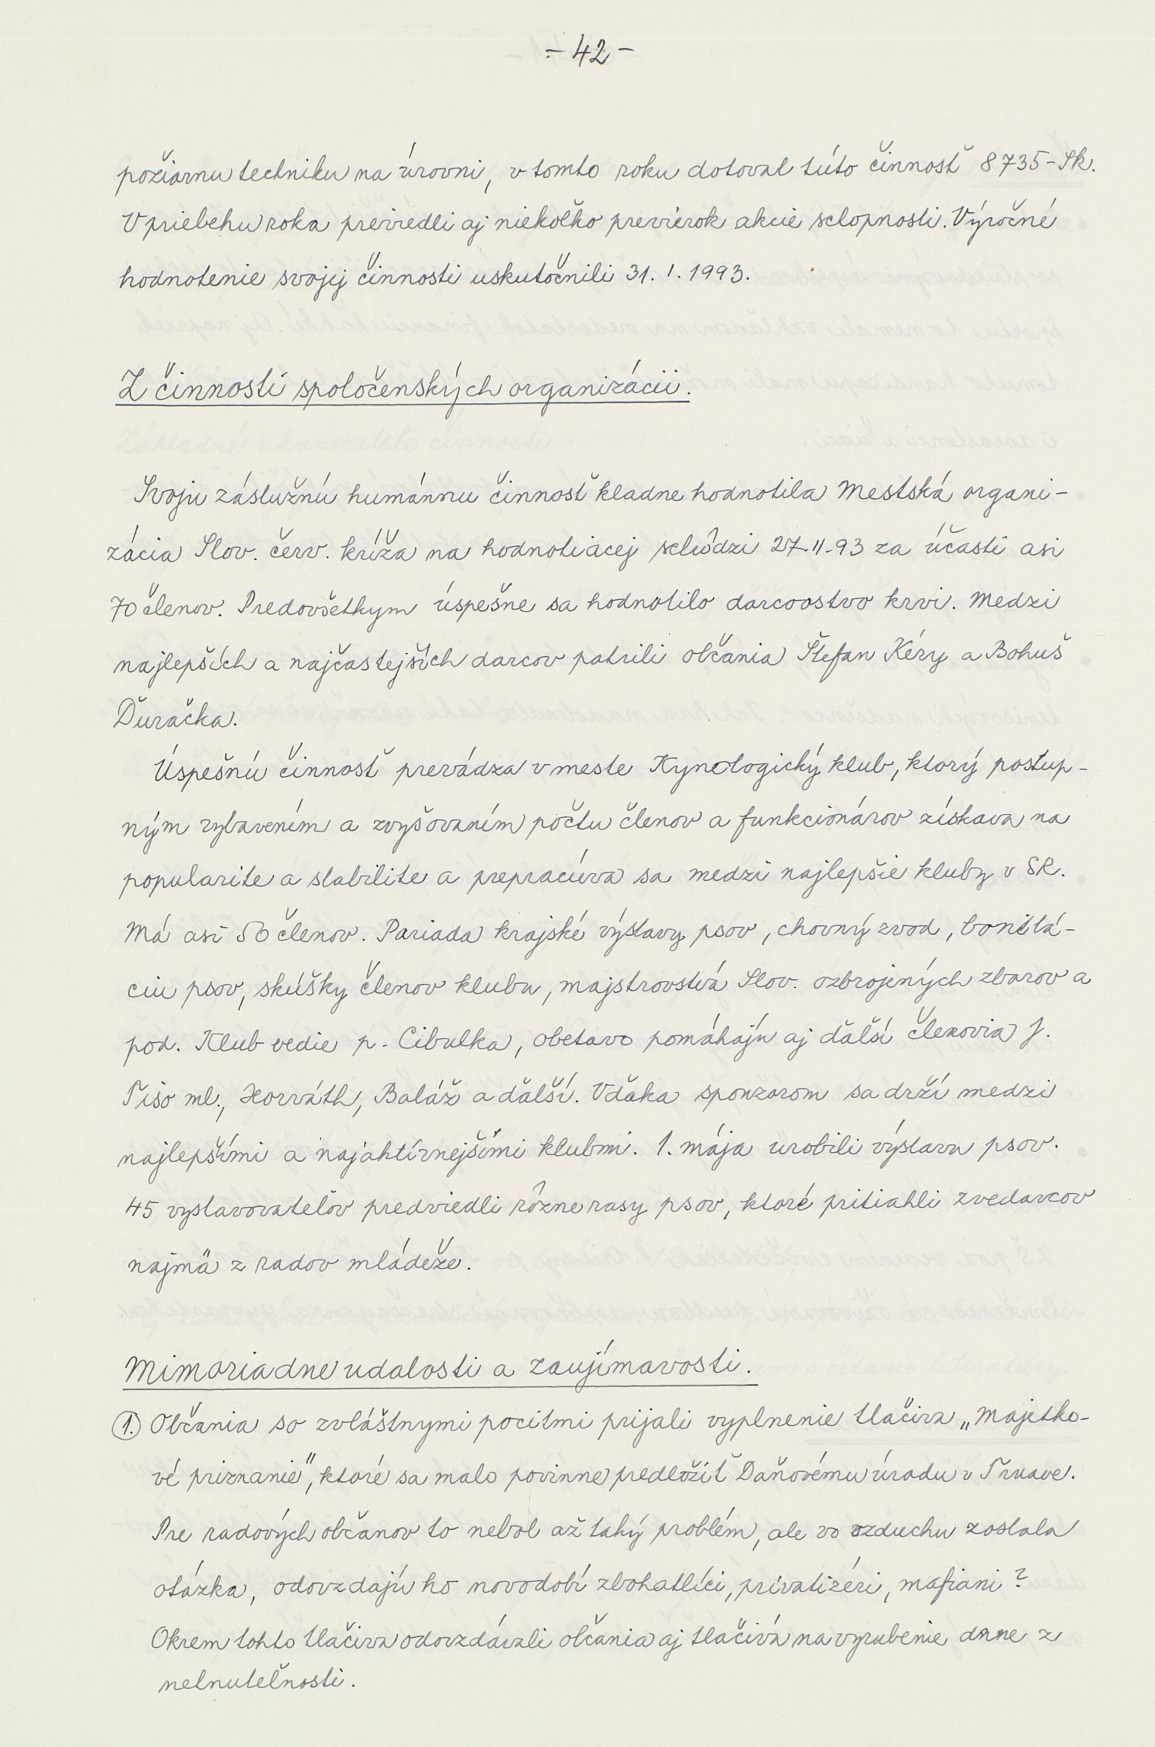 - 42 -
požiarnu techniku na úrovni, v tomto roku dotoval túto činnosť 8735-Sk.
V priebehu roka previedli aj niekoľko previerok akcie schopnosti. Výročné
hodnotenie svojej činnosti uskutočnili 31. 1. 1993.
Z činnosti spoločenských organizácii.
Svoju záslužnú humánnu činnosť kladne hodnotila Mestská organi-
zácia Slov. červ. kríža na hodnotiacej schôdzi 27-11-93 za účasti asi
70 členov. Predovšetkym úspešne sa hodnotilo darcovstvo krvi. Medzi
najlepších a najčastejších darcov patrili občania Štefan Kéry a Bohuš
Ďuračka.
Úspešnú činnosť prevádza v meste Kynologický klub, ktorý postup-
ným vybavením a zvyšovaním počtu členov a funkcionárov získava na
popularite a stabilite a prepracúva sa medzi najlepšie kluby v SR.
Má asi 50 členov. Poriada krajské výstavy psov, chovný zvod, bonitá-
ciu psov, skúšky členov klubu, majstrovstvá Slov. ozbrojených zborov a
pod. Klub vedie p. Cibulka, obetavo pomáhajú aj ďalší členovia J.
Tišo ml., Horváth, Baláž a ďalší. Vďaka sponzorom sa drží medzi
najlepšími a najaktívnejšími klubmi. 1. mája urobili výstavu psov.
45 vystavovateľov predviedli rôzne rasy psov, ktoré pritiahli zvedavcov
najmä z radov mládeže.
Mimoriadne udalosti a zaujímavosti.
1. Občania so zvláštnymi pocitmi prijali vyplnenie tlačiva „Majetko-
vé priznanie", ktoré sa malo povinne predložiť Daňovému úradu v Trnave.
Pre radových občanov to nebol až taký problém, ale vo vzduchu zostala
otázka, odovzdajú ho novodobí zbohatlíci, privatizéri, mafiani?
Okrem tohto tlačiva odovzdávali občania aj tlačivá na vyrubenie dane z
nehnuteľnosti.